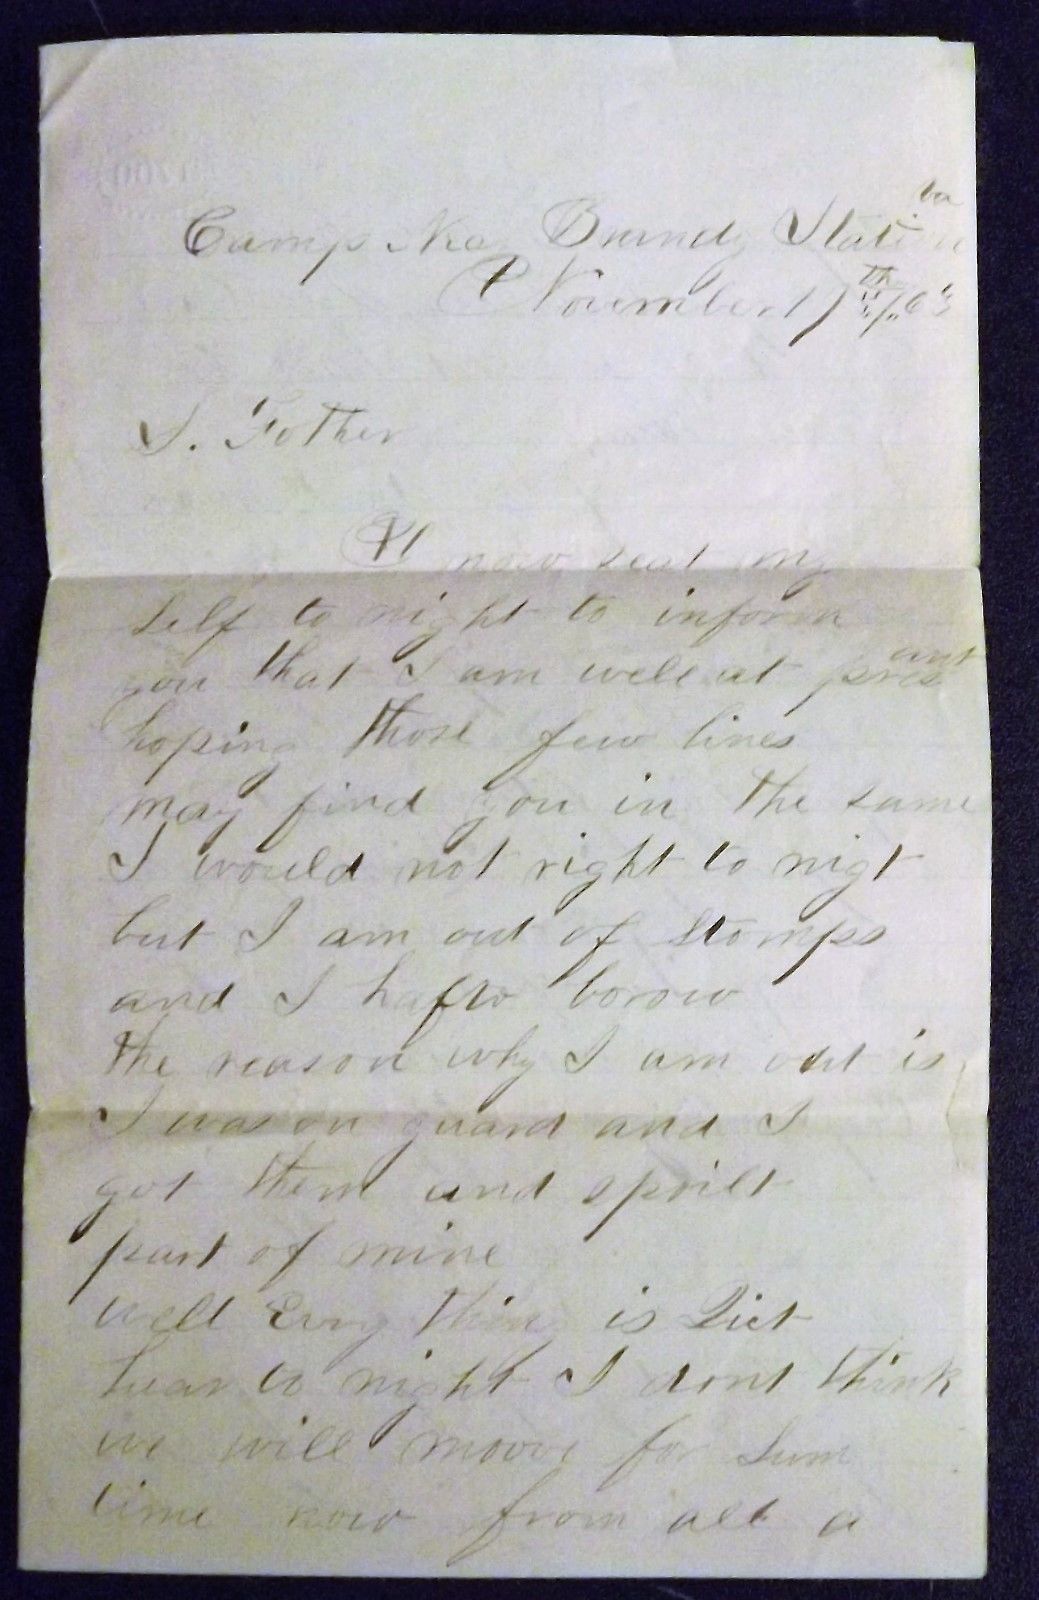 Camp Near Brandy Station va
November 17th /63
S. Father
I now seat my
self to night to inform
you that I am well at presant
hoping those few lines
may find you in the same
I would not right to nigt
but I am out of stomps
and I hafto borow
the reason why I am out is
I was on guard and I
got them and spoilt
part of mine
well Evry thing is Qiet
hear to night I dont think
we will moove for Sum
time now from all a